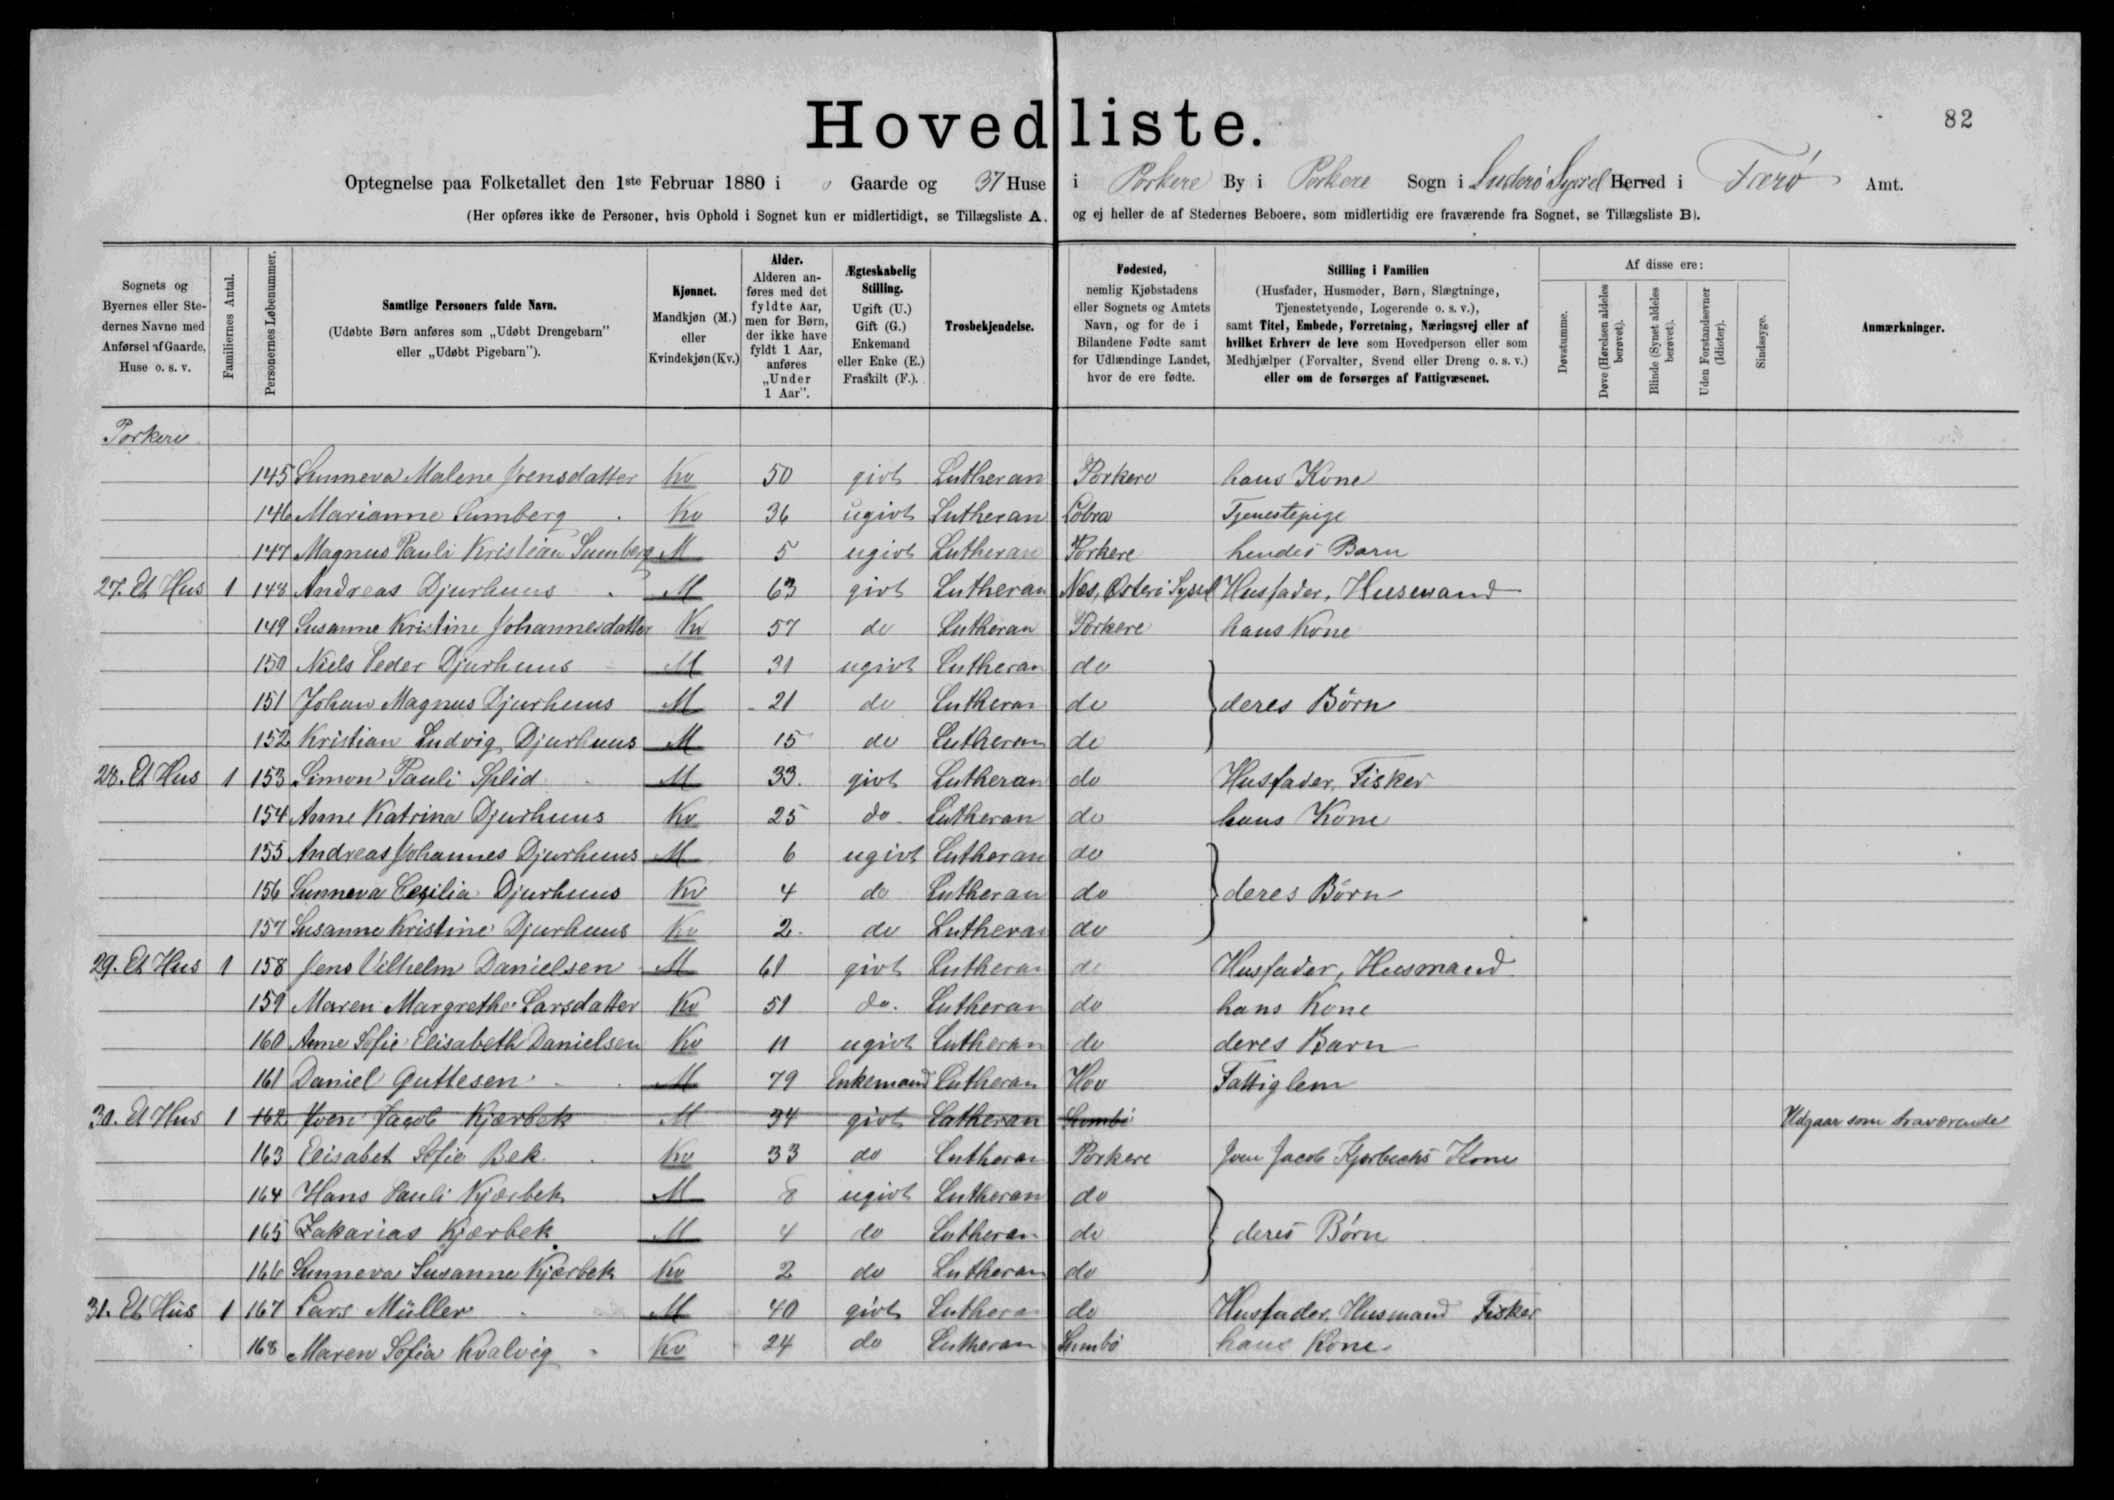 82
Hovedliste.
Optegnelse paa Folketallet den 1ste Februar 1880 i 0 Gaarde og 37 Huse i Porkere By i Porkere Sogn i Suderö Syssel Herred i Færö Amt.
(Her opføres ikke de Personer, hvis Ophold i Sognet kun er midlertidigt, se Tillægsliste A. og ej heller de af Stedernes Beboere, som midlertidig ere fraværende fra Sognet, se Tillægsliste B).
Sognets og Byernes eller Stedernes Navne med Anførsel af Gaarde, Huse o. s. v.
Familiernes Antal.
Personernes Løbenummer.
Samtlige Personers fulde Navn.
(Udøbte Børn anføres som „Udøbt Drengebarn" eller „Udøbt Pigebarn").
Kjønnet.
Mandkjøn (M.) eller Kvindekjøn (Kv.)
Alder.
Alderen anføres med det fyldte Aar, men for Børn, der ikke have fyldt 1 Aar, anføres „Under 1 Aar".
Ægteskabelig Stilling.
Ugift (U.) Gift (G.) Enkemand eller Enke (E.) Fraskilt (F.).
Trosbekjendelse.
Fødested,
nemlig Kjøbstadens eller Sognets og Amtets Navn, og for de i Bilandene Fødte samt for Udlændinge Landet, hvor de ere fødte.
Stilling i Familien
(Husfader, Husmoder, Børn, Slægtninge, Tjenestetyende, Logerende o. s. v.),
samt Titel, Embede, Forretning, Næringsvej eller af hvilket Erhverv de leve som Hovedperson eller som Medhjælper (Forvalter, Svend eller Dreng o. s. v.) eller om de forsørges af Fattigvæsenet.
Af disse ere:
Døvstumme.
Døve (Hørelsen aldeles berøvet).
Blinde (Synet aldeles berøvet).
Uden Forstandsevner (Idioter).
Sindssyge.
Anmærkninger.
Porkere
145 Sunneva Malene Joensdatter Kv 50 givt Lutheran Porkere hans Kone
146 Marianne Sumberg Kv 36 ugivt Lutheran Lobra Tjenestepige
147 Magnus Pauli Kristian Sumberg M 5 ugivt Lutheran Porkere hendes Barn
27. Et Hus 1 148 Andreas Djurhuus M 63 givt Lutheran Næs, Österö Syssel Husfader, Husmand
149 Susanne Kristine Johannesdatter Kv 57 do Lutheran Porkere hans Kone
150 Niels Peder Djurhuus M 31 ugivt Lutheran do
151 Johan Magnus Djurhuus M 21 do Lutheran do deres Börn
152 Kristian Ludvig Djurhuus M 15 do Lutheran do
28. Et Hus 1 153 Simon Pauli Splid M 33 givt Lutheran do Husfader, Fisker
154 Anne Katrina Djurhuus Kv 25 do Lutheran do hans Kone
155 Andreas Johannes Djurhuus M 6 ugivt Lutheran do
156 Sunneva Cecilia Djurhuus Kv 4 do Lutheran do deres Börn
157 Susanne Kristine Djurhuus Kv 2 do Lutheran do
29. Et Hus 1 158 Jens Vilhelm Danielsen M 61 givt Lutheran do Husfader, Husmand
159 Maren Margrethe Larsdatter Kv 51 do. Lutheran do hans Kone
160 Anne Sofie Elisabeth Danielsen Kv 11 ugivt Lutheran do deres Barn
161 Daniel Guttesen M 79 Enkemand Lutheran Hov Fattiglem
30. Et Hus 1 162 Joen Jacob Kjærbek M 34 givt Lutheran Sumbö Udgaar som fraværende
163 Elisabet Sofie Bek Kv 33 do Lutheran Porkere Joen Jacob Kjærbechs Kone
164 Hans Pauli Kjærbek M 8 ugivt Lutheran do
165 Zakarias Kjærbek M 4 do Lutheran do deres Börn
166 Sunneva Susanne Kjærbek Kv 2 do Lutheran do
31. Et Hus 1 167 Lars Müller M 40 givt Lutheran do Husfader, Husmand Fisker
168 Maren Sofia Kvalvig Kv 24 do Lutheran Sumbö hans Kone